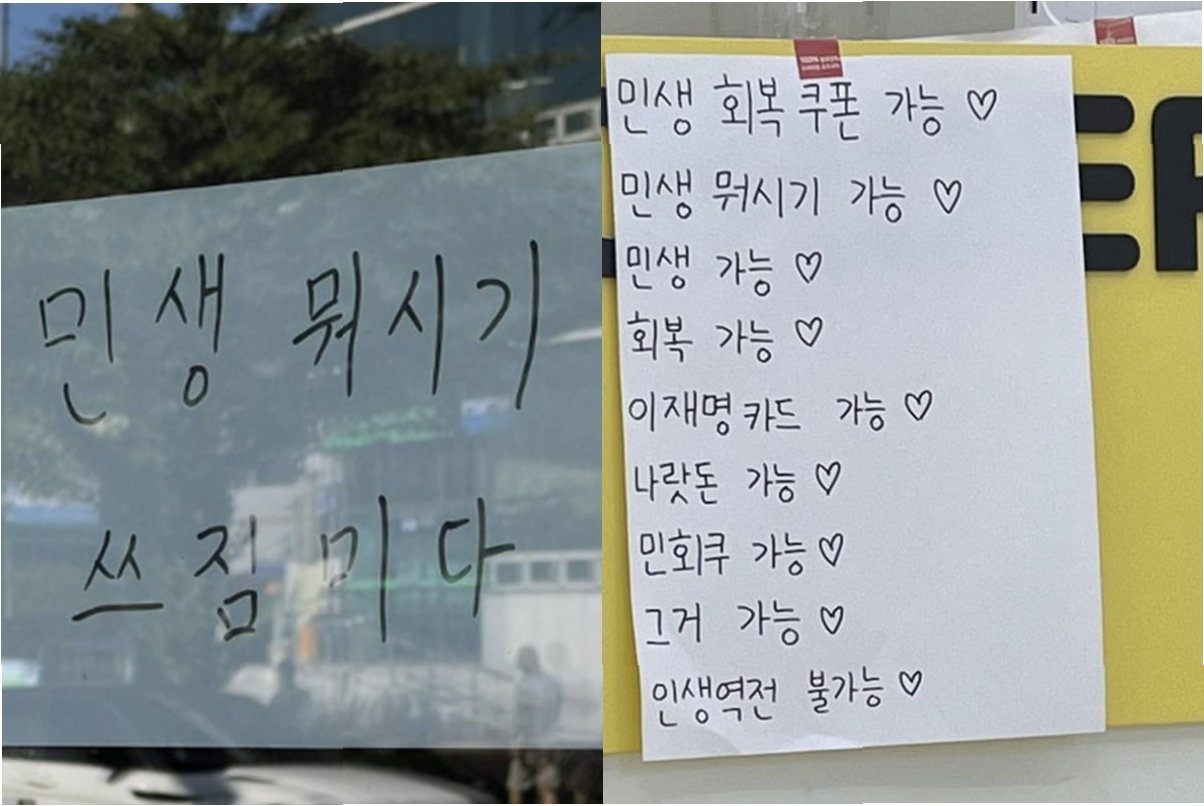 민생 뭐시기
쓰짐미다
민생 회복 쿠폰 가능 ♡
민생 뭐시기 가능 ♡
민생 가능 ♡
회복 가능 ♡
이재명 카드 가능 ♡
나랏돈 가능 ♡
민회쿠 가능 ♡
그거 가능 ♡
인생역전 불가능 ♡